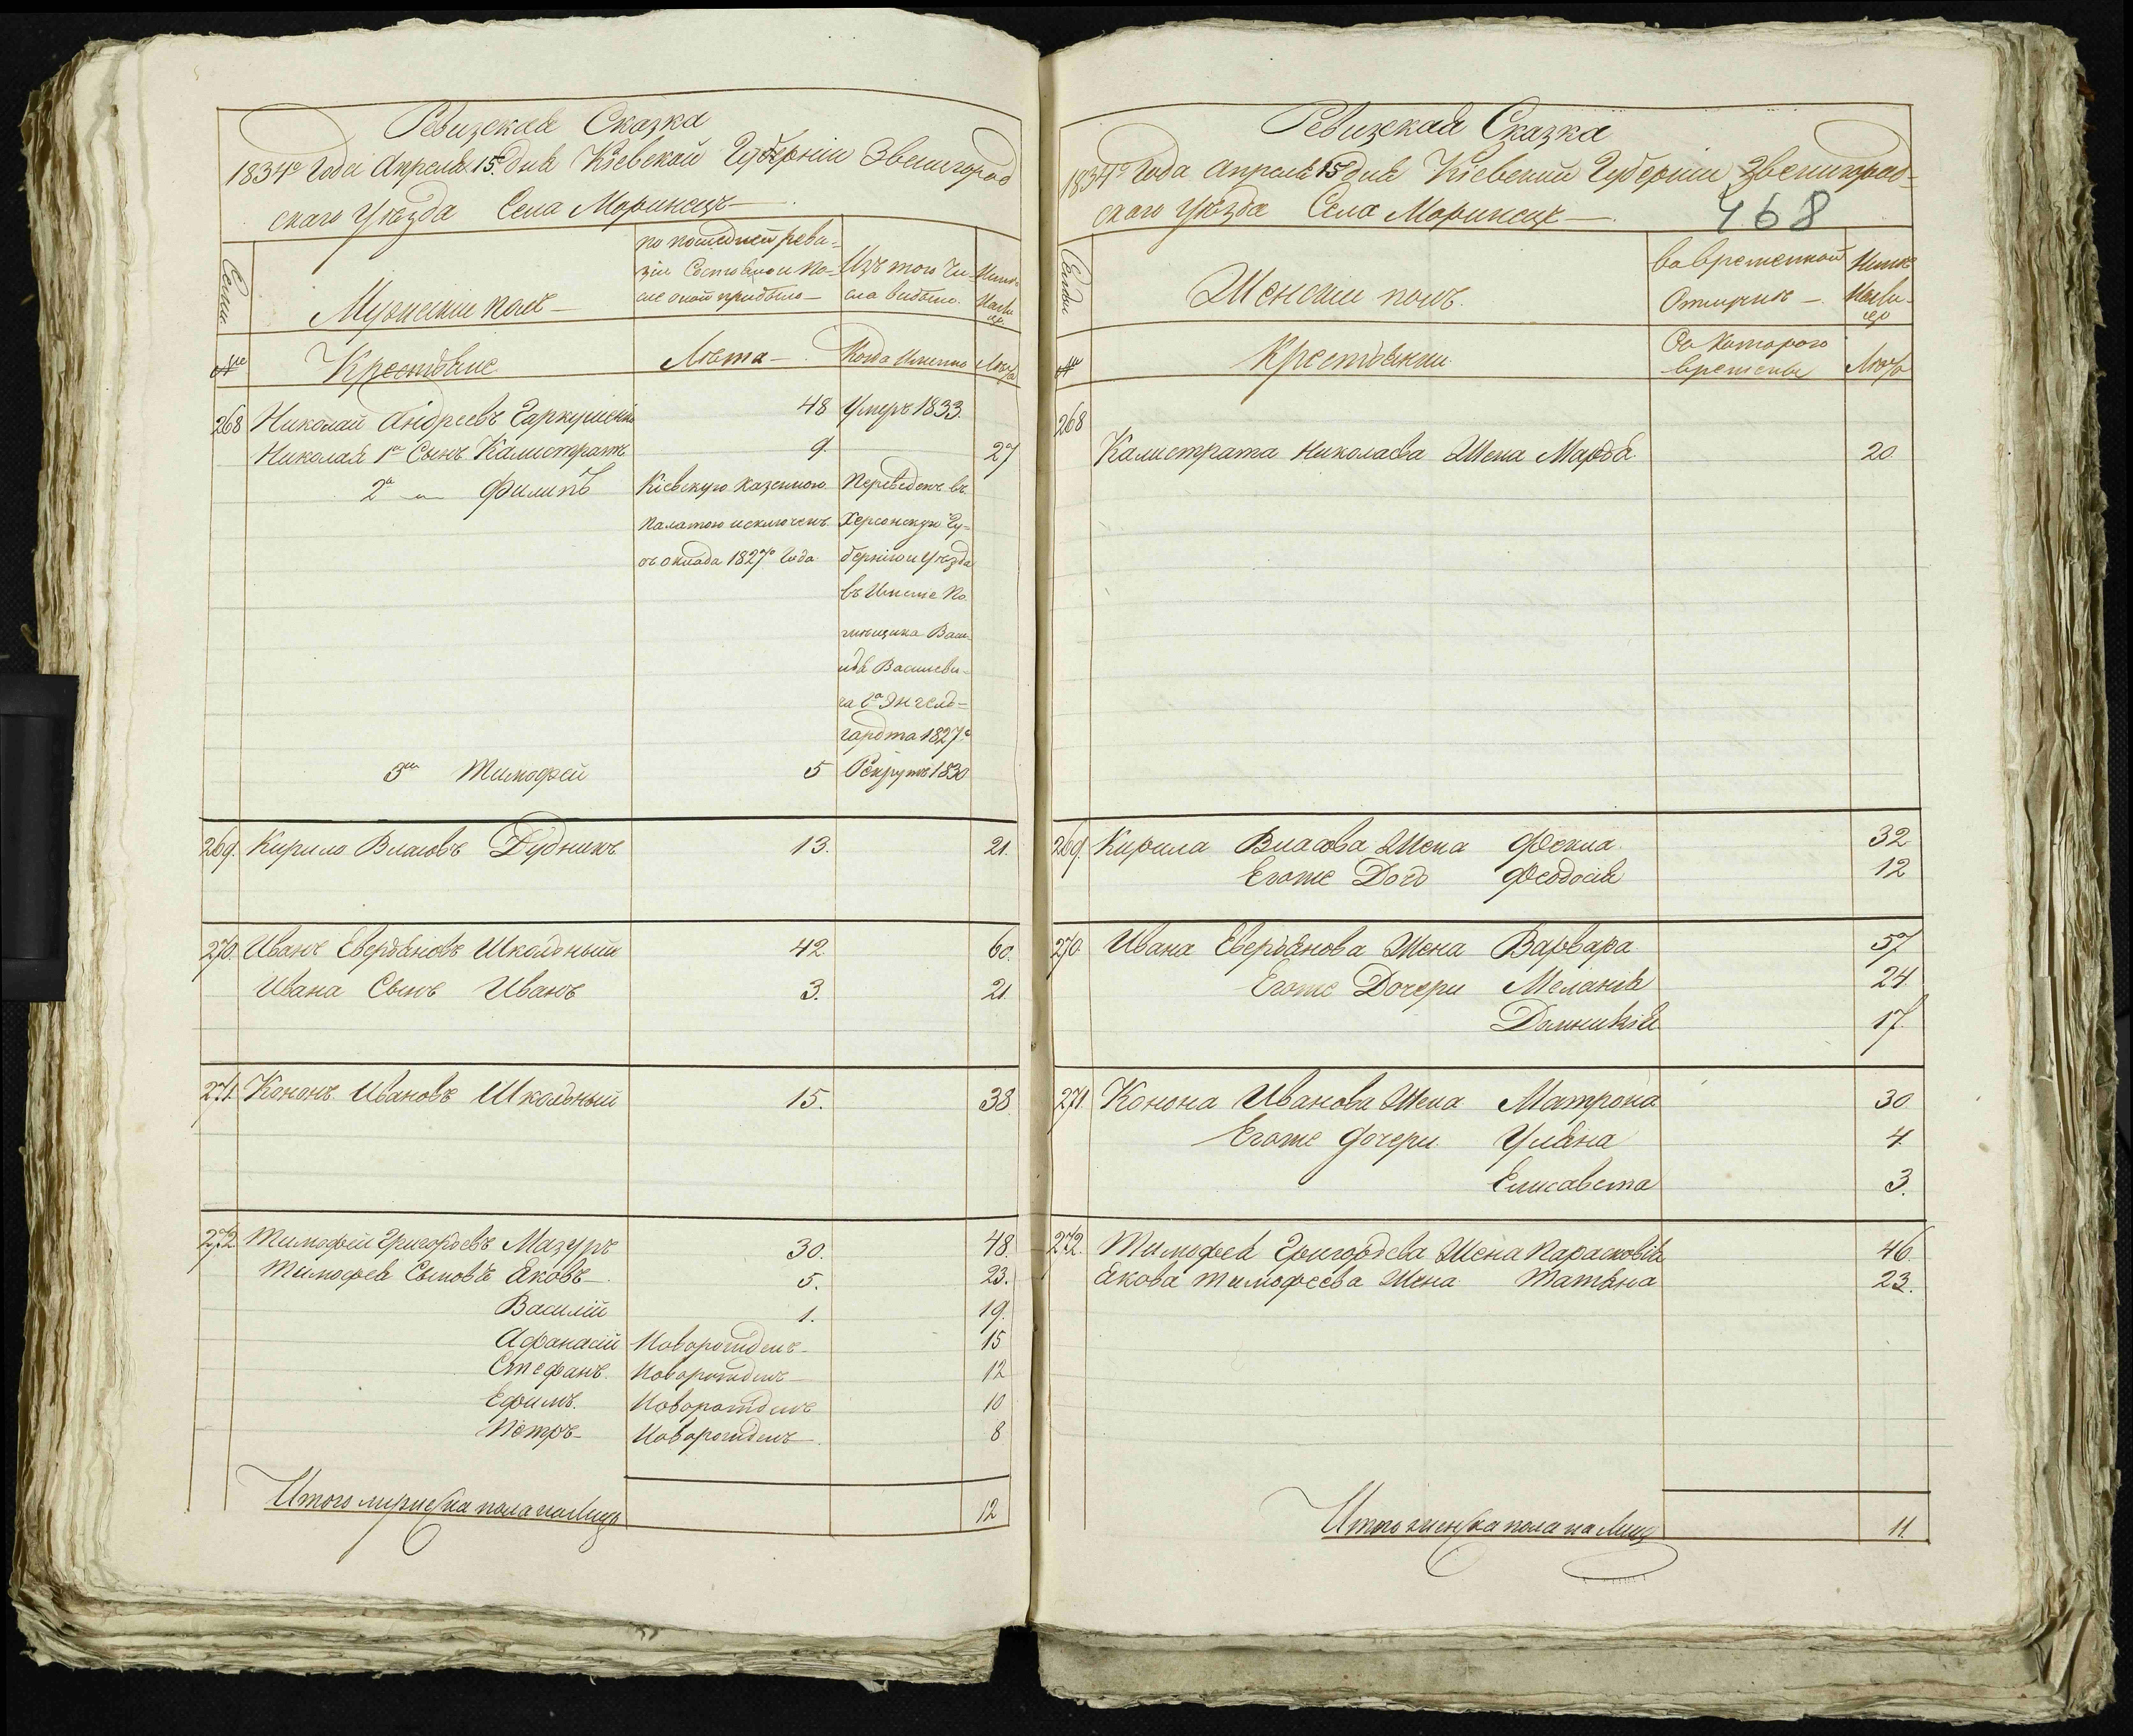 Ревизская Сказка
1834го Года Апреля 15го дня Кіевской Губерніи Звенигород
скаго Уѣзда Села Моринецъ
Семьи
Мужескій полъ
по последней реви-
зіи Состояло и по-
сле оной прибыло
Изъ того чи
сла выбыло
Нынѣ
Налицо
№
Крестьяне
Лѣта
Когда именно
Лѣта
268 Николай Андреевъ Гаркушенко 48 Умеръ 1833.
Николая 1й Сынъ Калистратъ 9. 27
2й Филипъ Кіевскую Казенною Переведенъ въ
Палатою исключенъ Херсонскую Гу-
съ оклада 1827го Года бернію и Уѣзда
въ Имение По
мещика Васи
лія Василеви-
ча Энгель-
гардта 1827го
3й Тимофей 5 Рекрутъ 1830
269. Кирило Власовъ Дудникъ 13. 21.
270. Иванъ Еверьяновъ Школьный 42. 60.
Ивана Сынъ Иванъ 3. 21.
271. Кононъ Ивановъ Школьный 15. 38
272 Тимофей Григорьевъ Мазуръ 30. 48.
Тимофея Сыновья Яковъ 5. 23.
Василій 1. 19.
Афанасій Новорожденъ 15
Стефанъ. Новорожденъ 12
Ефимъ. Новорожденъ 10
Петръ Новорожденъ 8
Итого мужеска пола налицо 12
Ревизская Сказка
1834го Года Апреля 15 дня Кіевской Губерніи Звенигород-
скаго Уѣзда Села Моринецъ
468
Семьи
Женскій полъ.
Во временной
Отлучке
Нынѣ
Нали-
цо
№
Крестьянки
Съ Котораго
времени
Лѣта
268
Калистрата Николаева Жена Марфа 20
269. Кирила Власова Жена Фекла 32
Егоже Дочь Феодосія 12
270 Ивана Еверьянова Жена Варвара 57
Егоже Дочери Меланія 24
Домникія 17.
271 Конона Иванова Жена Матрона 30
Егоже Дочери Уляна 4
Елисавета 3.
272. Тимофея Григорьева Жена Парасковія 46
Якова Тимофеева Жена Татьяна 23.
Итого женска пола налицо 11.